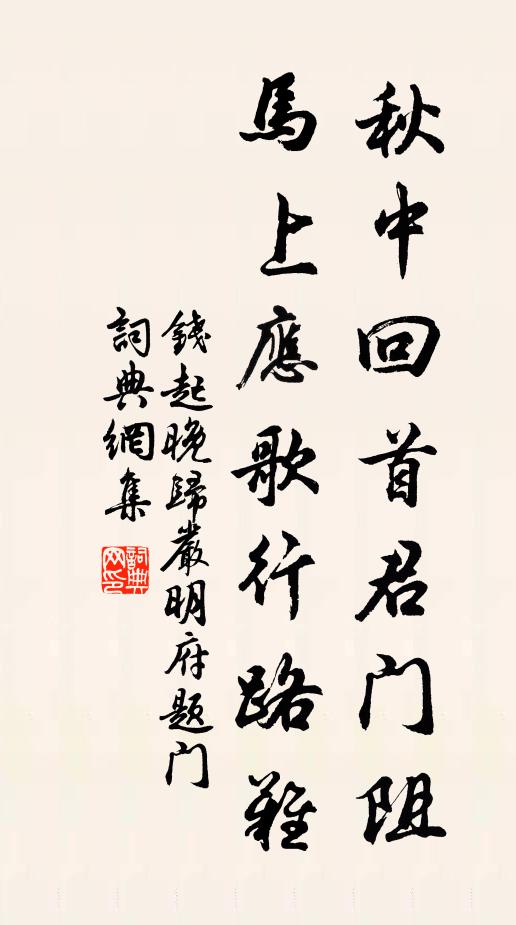 秋中回首君门阻
馬上應歌行路難
錢起晚歸嚴明府题门
詞典網集
詞典網印